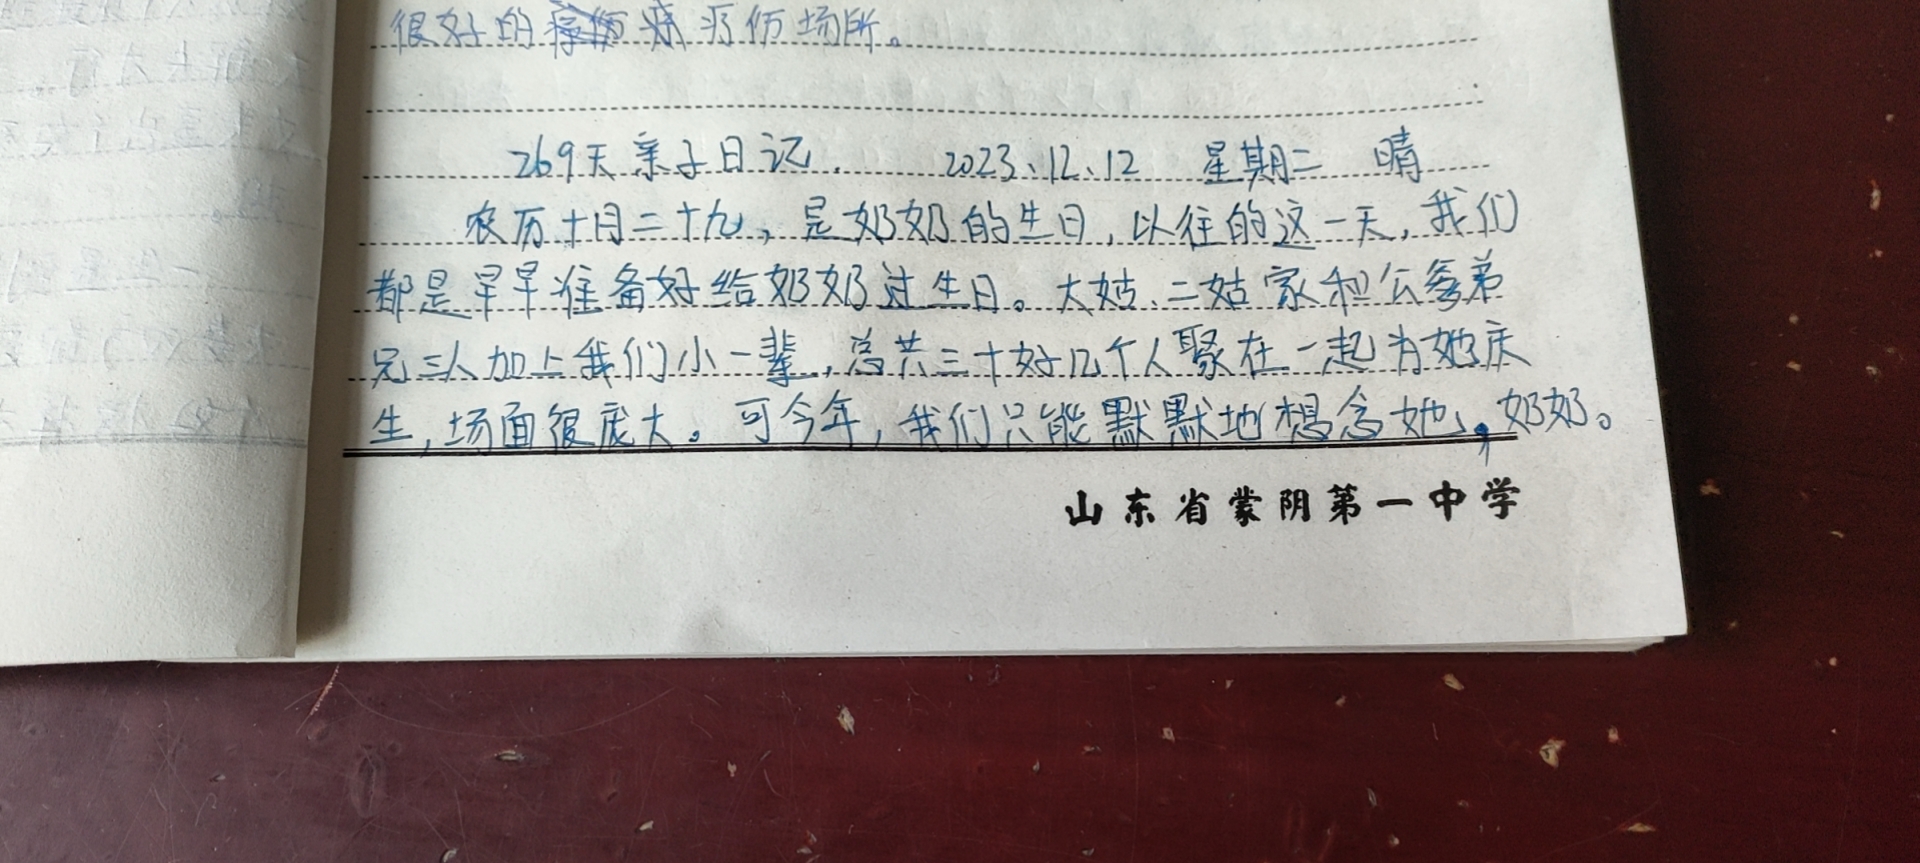 很好的疗伤场所。
269天亲子日记. 2023.12.12 星期二 晴
农历十月二十九，是奶奶的生日，以往的这一天，我们
都是早早准备好给奶奶过生日。大姑、二姑家和公爹弟
兄三人加上我们小一辈，总共三十好几个人聚在一起为她庆
生，场面很庞大。可今年，我们只能默默地想念她，奶奶。
山东省蒙阴第一中学